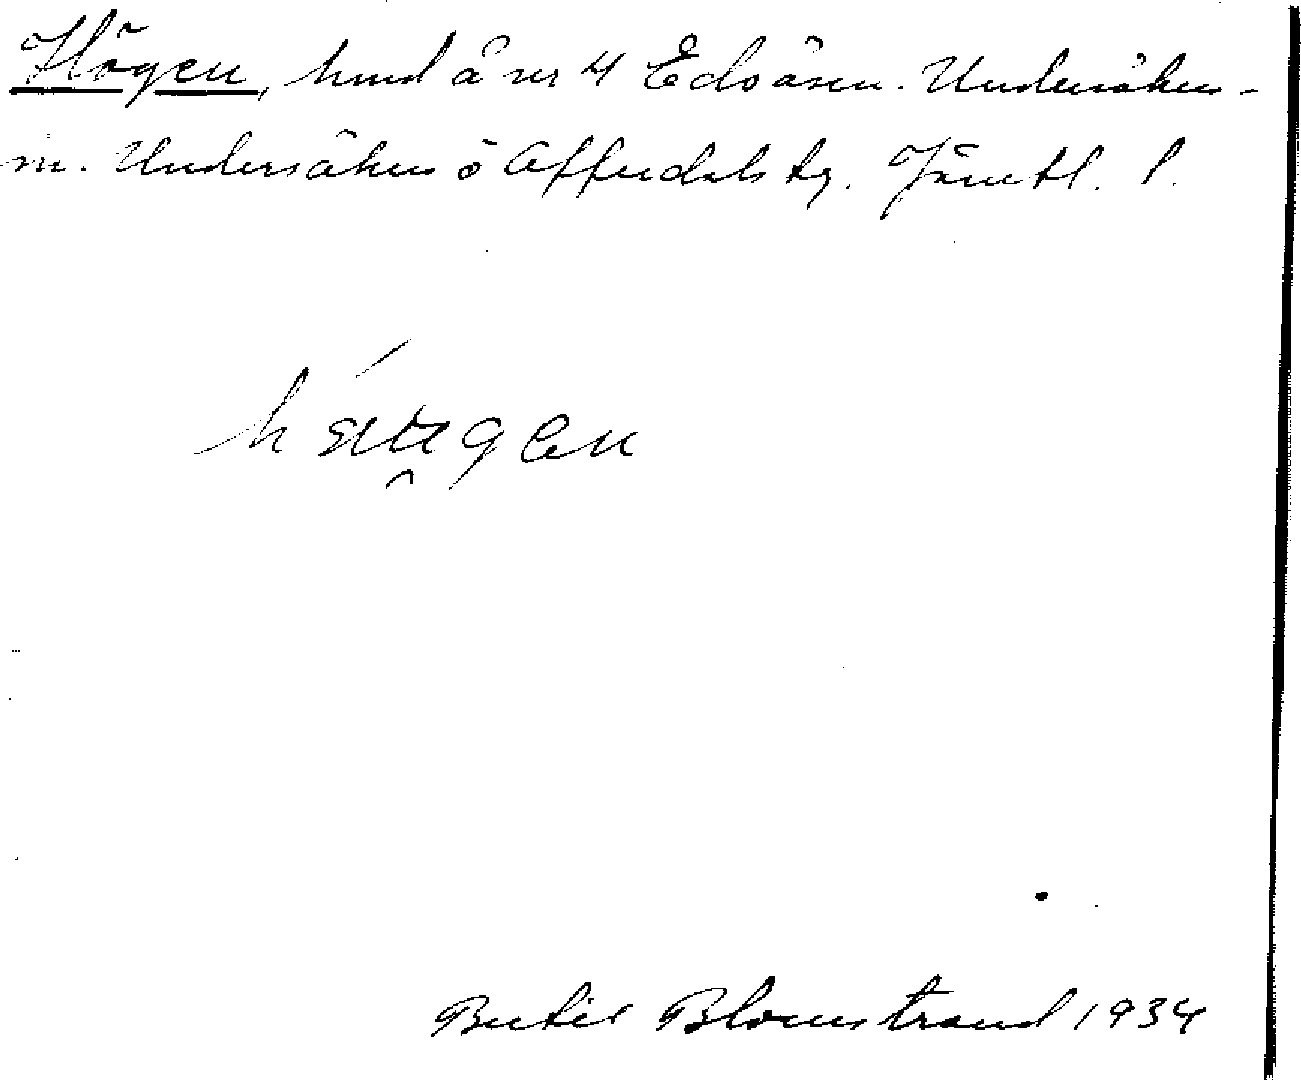 Högen, hmd å nr 4 Edsåsen. Undersåkers-
m. Undersåkers o Offerdals tg. Jämtl. l.
Bertil Blomstrand 1934